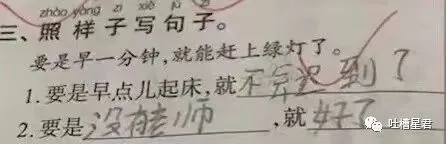 zhào yàng zi xiě jù zi
三、照样子写句子。
要是早一分钟，就能赶上绿灯了。
1.要是早点儿起床，就不会迟到了
2.要是没有老师，就好了
吐槽星君